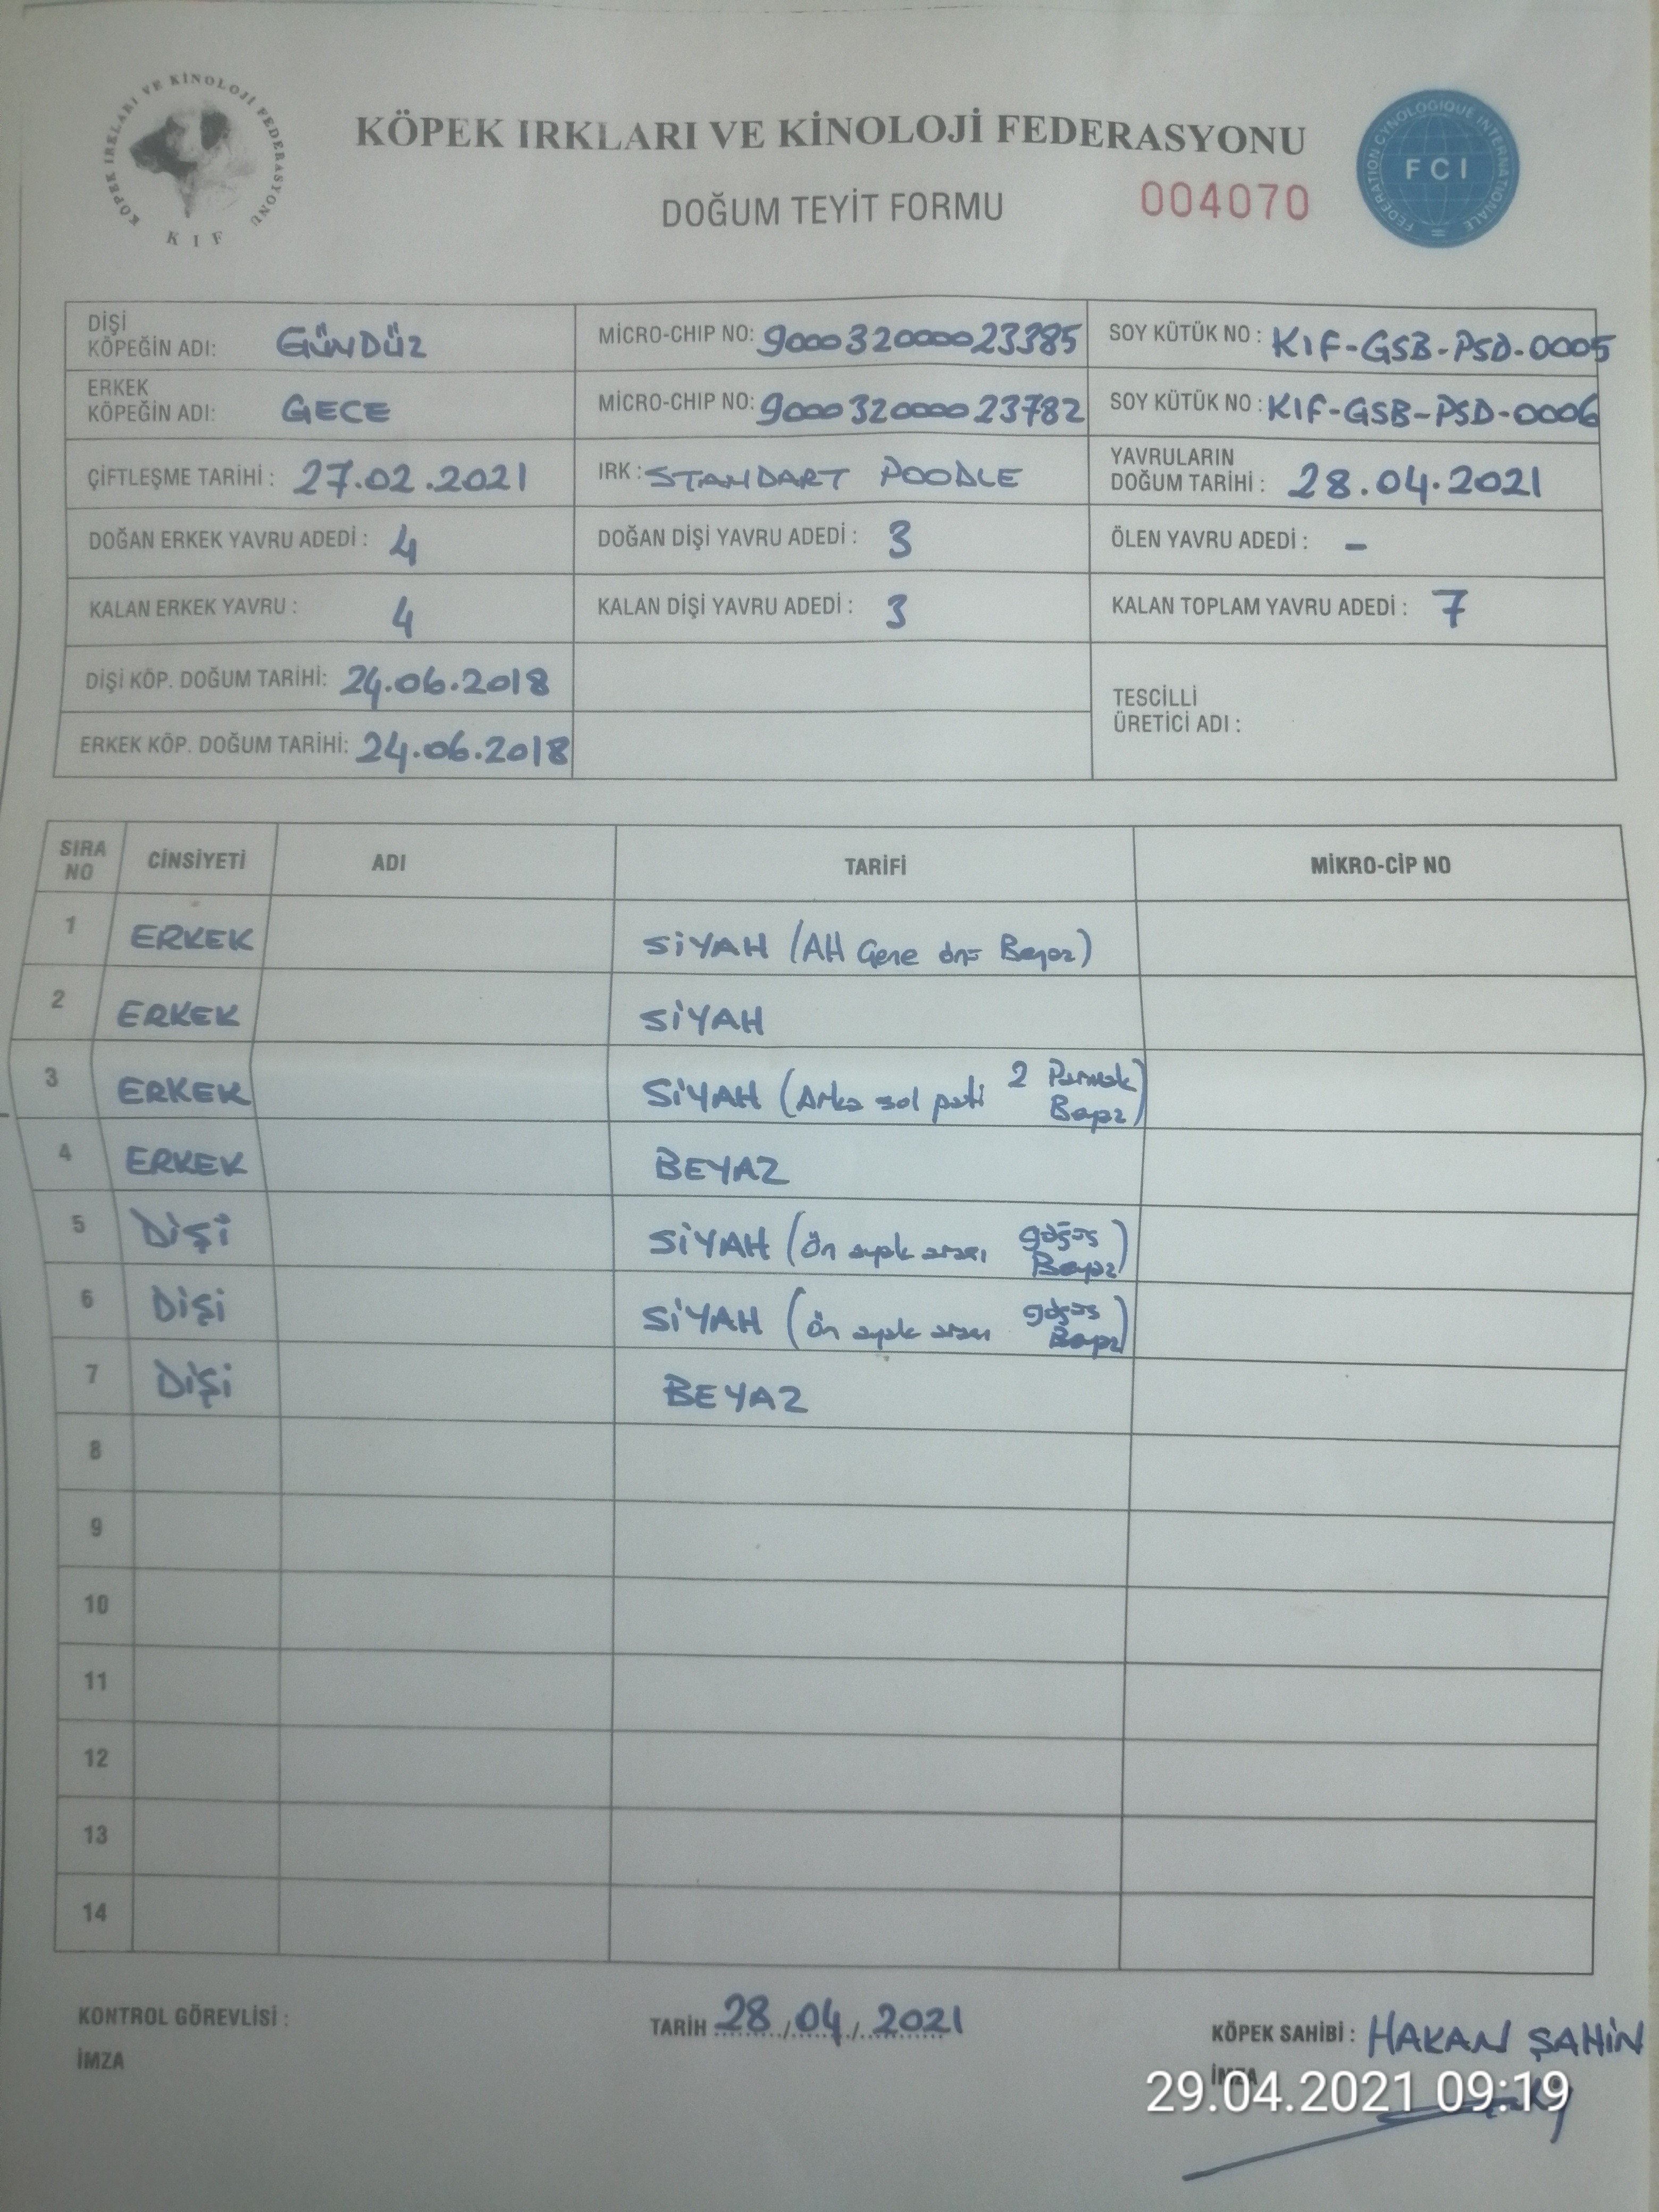 KÖPEK IRKLARI VE KİNOLOJİ FEDERASYONU
K I F
KÖPEK IRKLARI VE KİNOLOJİ FEDERASYONU
DOĞUM TEYİT FORMU
004070
FEDERATION CYNOLOGIQUE INTERNATIONALE
FCI
DİŞİ
KÖPEĞİN ADI: GÜNDÜZ
MİCRO-CHIP NO: 900032000023385
SOY KÜTÜK NO : KIF-GSB-PSD-0005
ERKEK
KÖPEĞİN ADI: GECE
MİCRO-CHIP NO: 900032000023782
SOY KÜTÜK NO : KIF-GSB-PSD-0006
ÇİFTLEŞME TARİHİ : 27.02.2021
IRK : STANDART POODLE
YAVRULARIN
DOĞUM TARİHİ : 28.04.2021
DOĞAN ERKEK YAVRU ADEDİ : 4
DOĞAN DİŞİ YAVRU ADEDİ : 3
ÖLEN YAVRU ADEDİ : -
KALAN ERKEK YAVRU : 4
KALAN DİŞİ YAVRU ADEDİ : 3
KALAN TOPLAM YAVRU ADEDİ : 7
DİŞİ KÖP. DOĞUM TARİHİ: 24.06.2018
TESCİLLİ
ÜRETİCİ ADI :
ERKEK KÖP. DOĞUM TARİHİ: 24.06.2018
SIRA NO CİNSİYETİ ADI TARİFİ MİKRO-CİP NO
1 ERKEK SİYAH (Alt Çene önü Beyaz)
2 ERKEK SİYAH
3 ERKEK SİYAH (Arka sol pati 2 Parmak Beyaz)
4 ERKEK BEYAZ
5 DİŞİ SİYAH (Ön ayak arası göğüs Beyaz)
6 DİŞİ SİYAH (Ön ayak arası göğüs Beyaz)
7 DİŞİ BEYAZ
8
9
10
11
12
13
14
KONTROL GÖREVLİSİ :
İMZA
TARİH 28/04/2021
KÖPEK SAHİBİ : HAKAN ŞAHİN
İMZA
29.04.2021 09:19